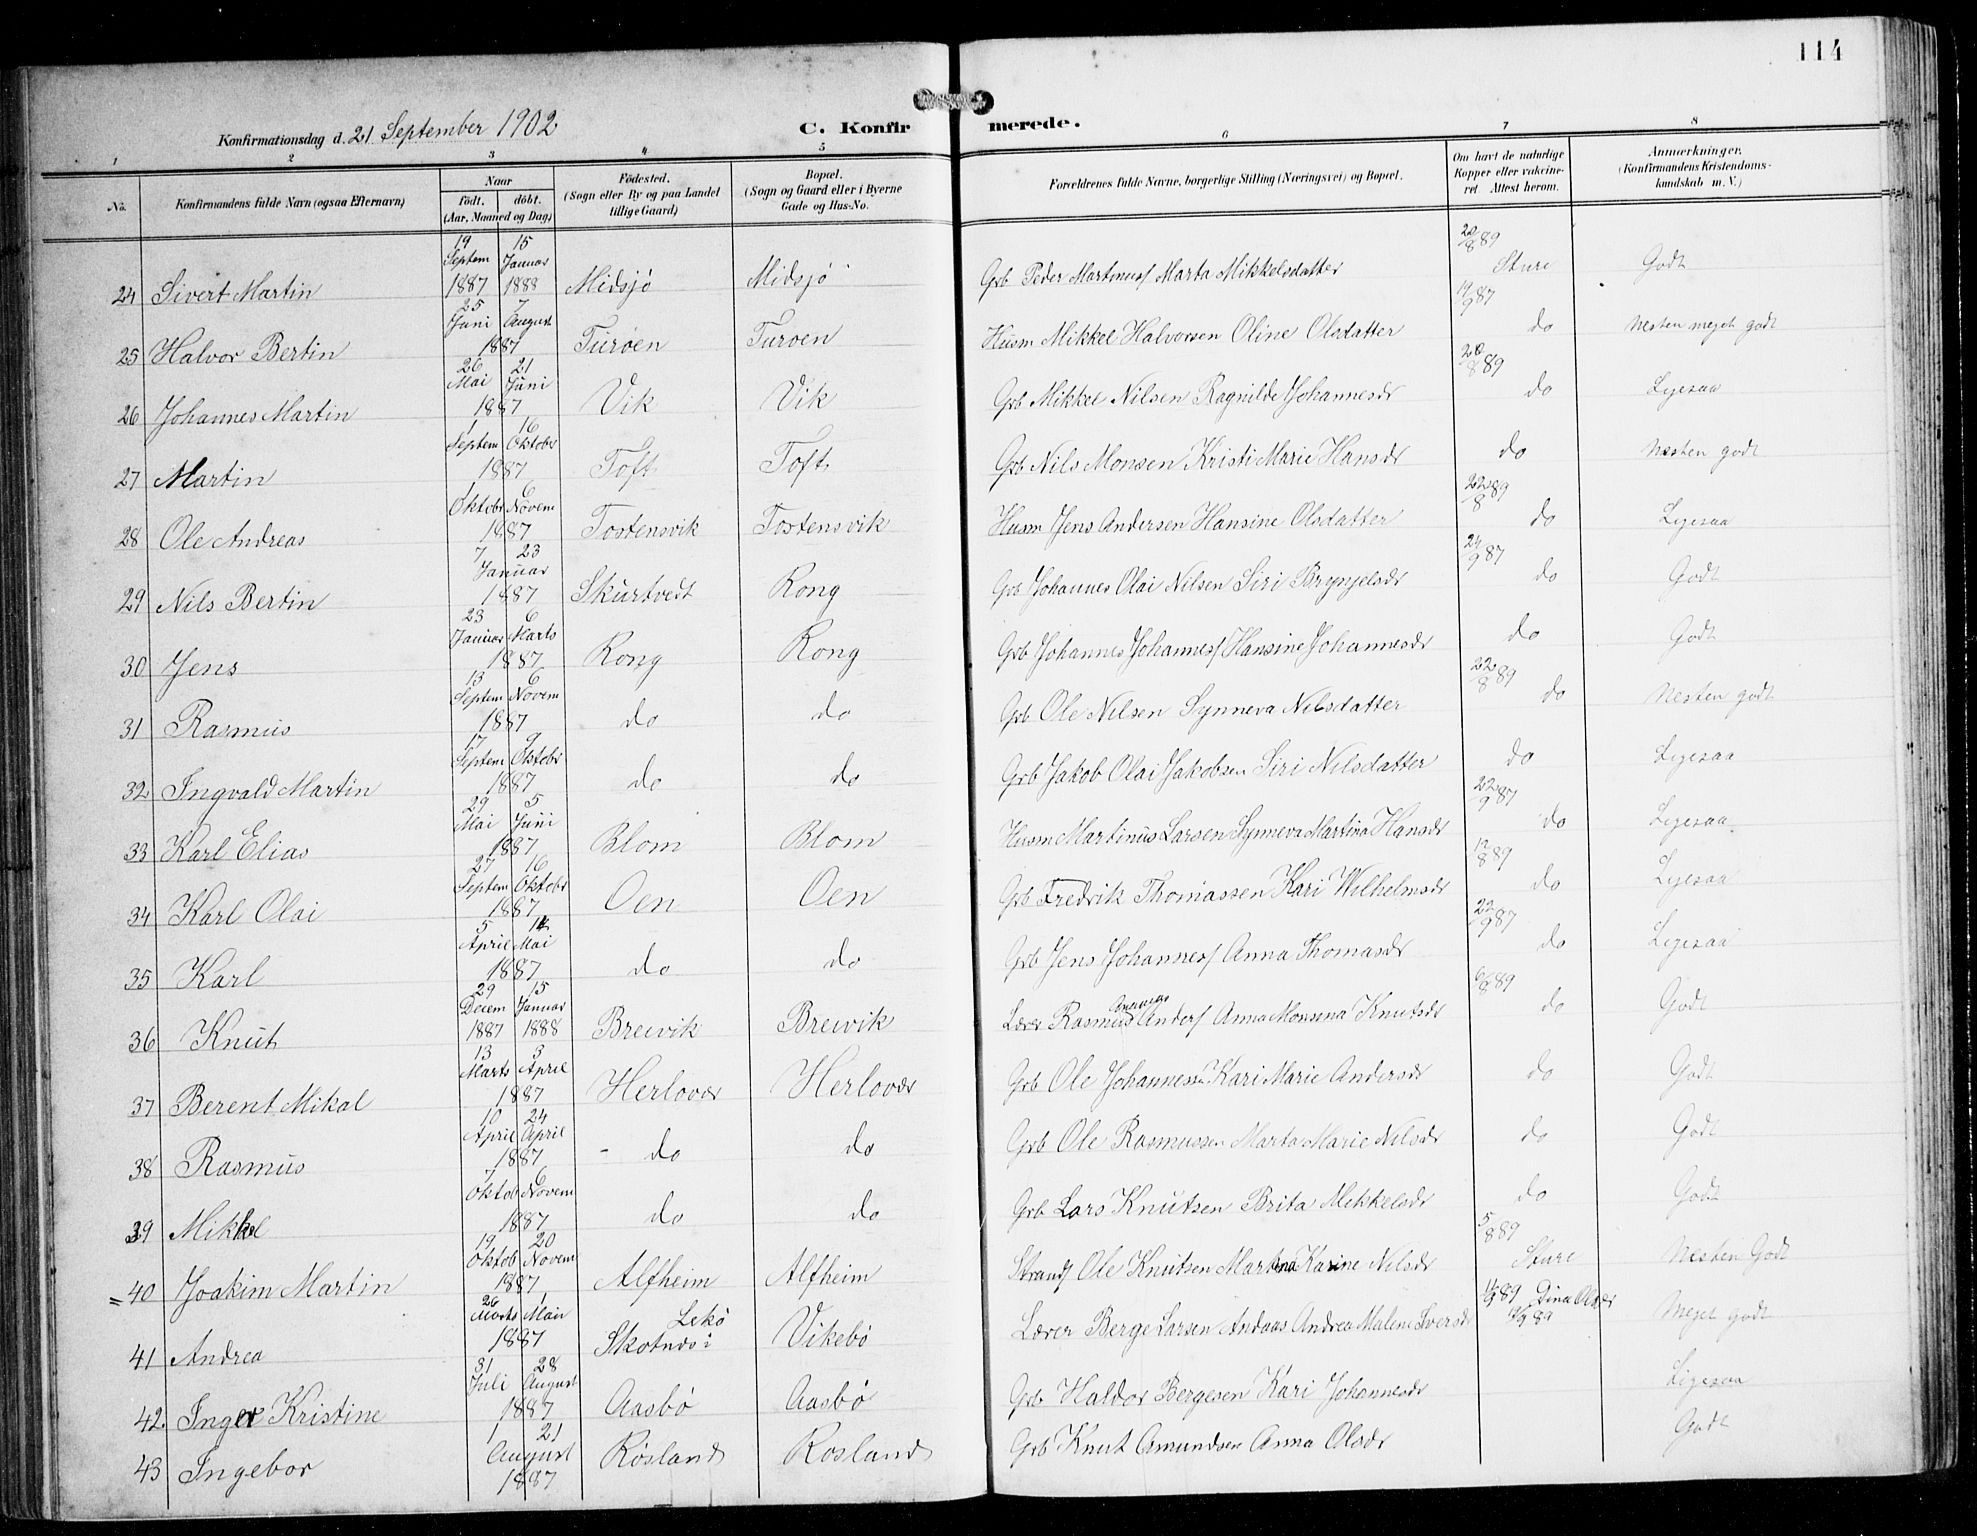 114
Konfirmationsdag d. 21 September 1902 C. Konfirmerede.
1 2 3 4 5 6 7 8
No. Konfirmandens fulde Navn (ogsaa Efternavn) Naar født. døbt. (Aar, Maaned og Dag) Fødested. (Sogn eller By og paa Landet tillige Gaard) Bopæl. (Sogn og Gaard eller i Byerne Gade og Hus-No. Forældrenes fulde Navne, borgerlige Stilling (Næringsvei) og Bopæl. Om havt de naturlige Kopper eller vakcineret Attest herom. Anmærkninger. (Konfirmandens Kristendomskundskab m. V.)
24 Sivert Martin 19 Septem 1887 15 Januar 1888 Midsjø Midsjø Grb Peder Martinus/ Marta Mikkelsdatter 20/8 89 Sture Godt
25 Halvor Bertin 25 Juni 7 August 1887 Turøen Turoen Husm Mikkel Halvorsen Oline Olsdatter 19/9 87 do Nesten meget godt
26 Johannes Martin 26 Mai 21 Juni 1887 Vik Vik Grb Mikkel Nilsen Ragnilde Johannesdr 20/8 89 do Ligesaa
27 Martin 1 Septem 16 Oktobr 1887 Toft Toft Grb Nils Monsen Kristi Marie Hansdr do Nesten godt
28 Ole Andreas 1 Oktobr 6 Novem 1887 Tostensvik Tostensvik Husm Jens Andersen Hansine Olsdatter 22/8 89 do Ligesaa
29 Nils Bertin 7 23 Januar 1887 Skurtveit Rong Grb Johannes Olai Nilsen Siri Brynjelsdr 24/9 87 do Godt
30 Jens 23 Januar 6 Marts 1887 Rong Rong Grb Johannes Johannes/ Hansine Johannesdr do Godt
31 Rasmus 13 Septem 6 Novem 1887 do do Grb Ole Nilsen Synneva Nilsdatter 22/8 89 do Nesten godt
32 Ingvald Martin 17 Septem 9 Oktobr 1887 do do Grb Jakob Olai Jakobsen Siri Nilsdatter do Ligesaa
33 Karl Elias 29 Mai 5 Juni 1887 Blom Blom Husm Martinus Larsen Synneva Martina Hansdr 22/9 87 do Ligesaa
34 Karl Olai 27 Septem 16 Oktobr 1887 Oen Oen Grb Fredrik Thomassen Kari Wilhelmsdr 12/8 89 do Ligesaa
35 Karl 5 April Mai 1887 do do Grb Jens Johannes/ Anna Thomasdr 22/9 87 do Ligesaa
36 Knut 29 Decem 1887 15 Januar 1888 Breivik Breivik Lærer Rasmus Ananias Anders/ Anna Monsina Knutsdr 6/8 89 do Godt
37 Berent Mikal 13 Marts 3 April 1887 Herlovær Herlovær Grb Ole Johannessen Kari Marie Andersdr do Godt
38 Rasmus 10 April 24 April 1887 do do Grb Ole Rasmussen Marta Marie Nilsdr do Godt
39 Mikkel 7 Oktob 6 Novem 1887 do do Grb Lars Knutsen Brita Mikkelsdr do Godt
40 Joakim Martin 19 Oktob 20 Novem 1887 Alfheim Alfheim Strands/ Ole Knutsen Martina Karine Nilsdr 5/8 89 Sture Nesten Godt
41 Andrea 26 Marts 1 Mai 1887 Skotnes i Lekø Vikebø Lærer Berge Larsen Andaas Andrea Malene Iversdr 14/9 89 Dina Olsdr 12/9 89 Meget godt
42 Inger Kristine 31 Juli 28 August 1887 Aasbø Aasbø Grb Haldor Bergesen Kari Johannesdr Ligesaa
43 Ingebor 1 21 August 1887 Røsland Rosland Grb Knut Amundsen Anna Olsdr Godt